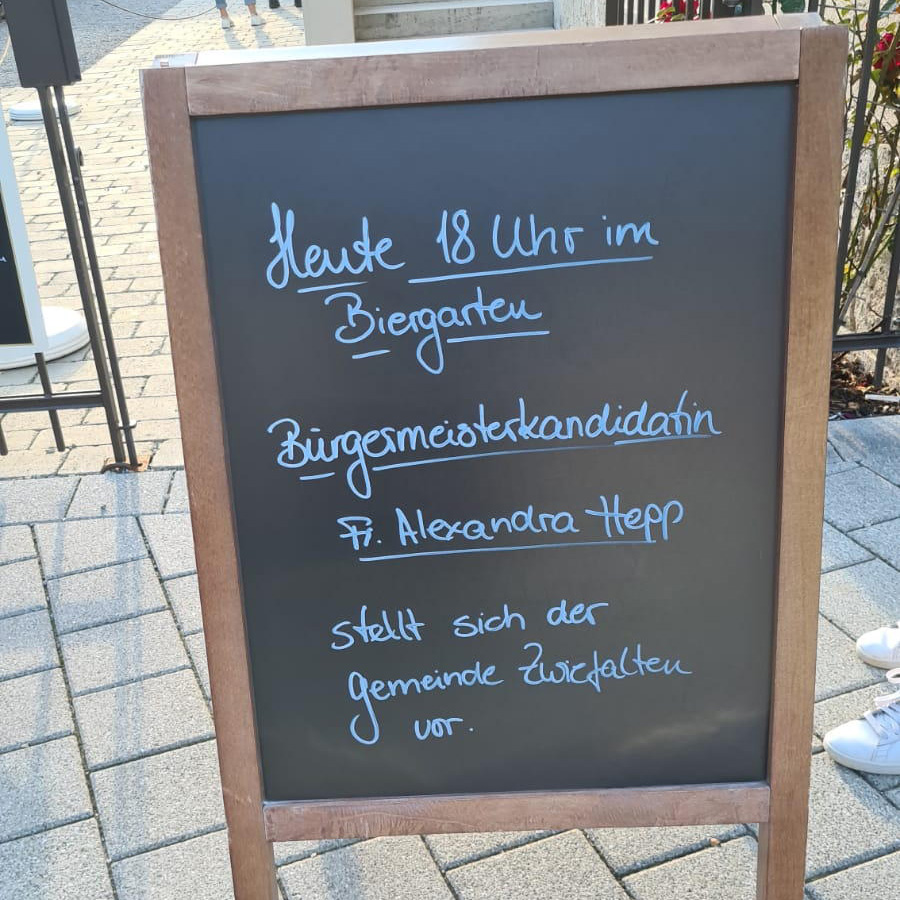 Heute 18 Uhr im
Biergarten
Bürgermeisterkandidatin
Fr. Alexandra Hepp
stellt sich der
gemeinde Zwiefalten
vor.